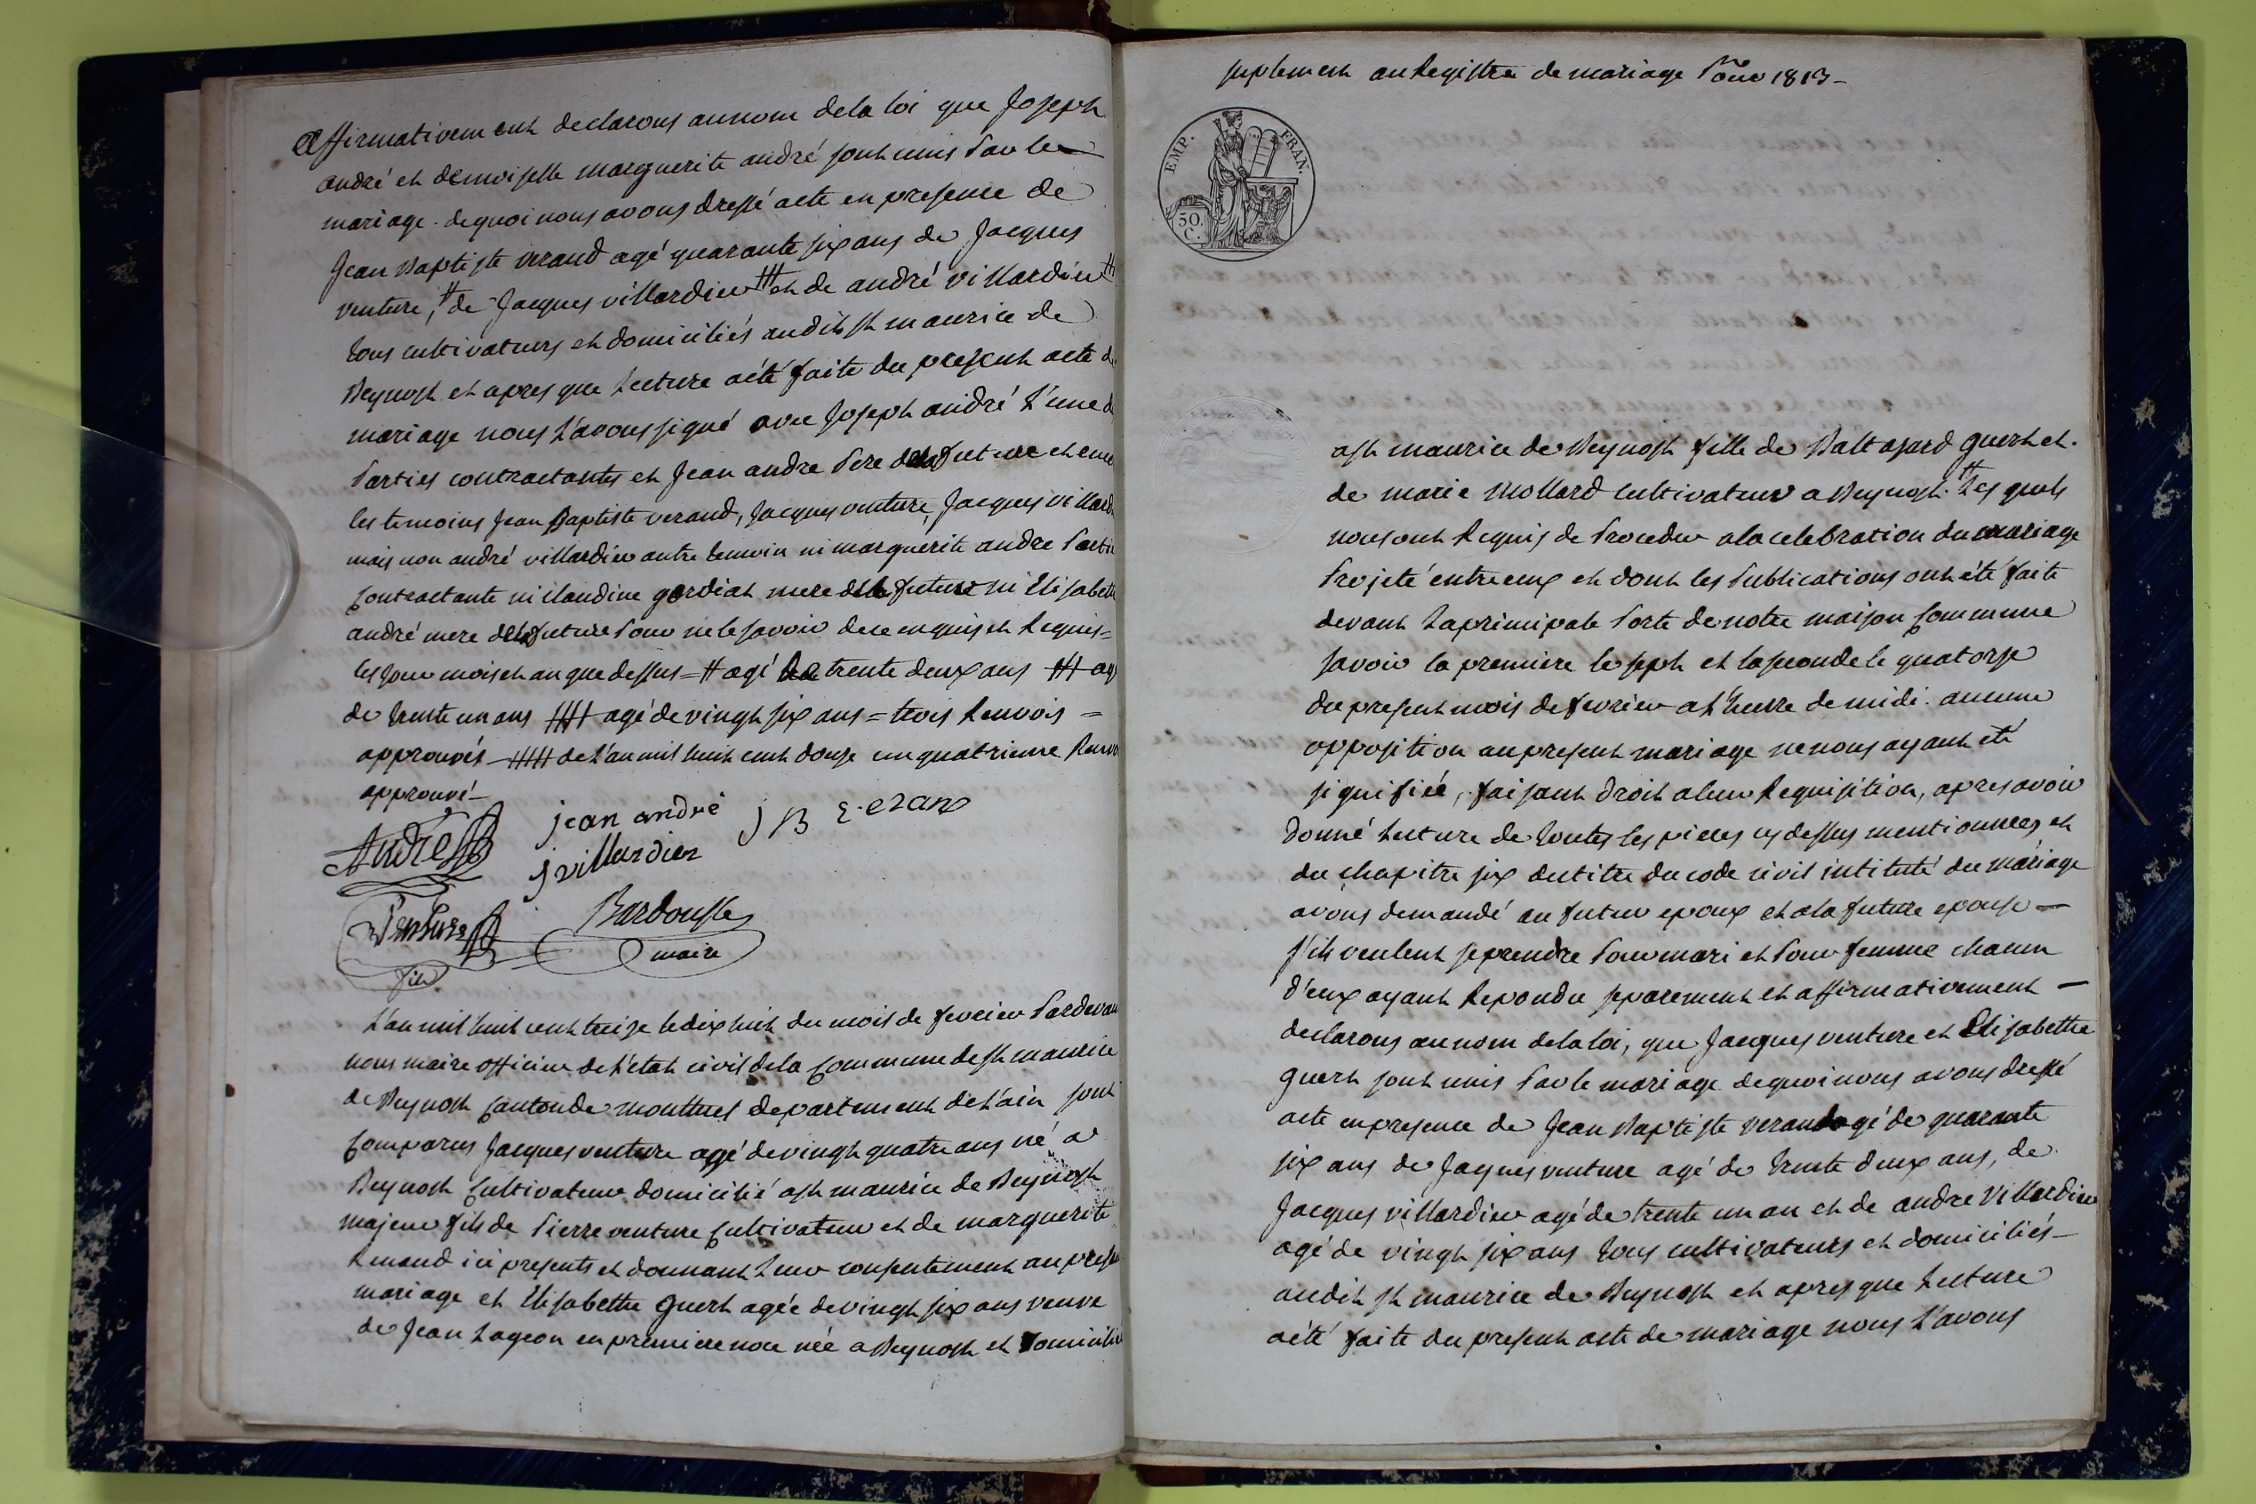 affirmativement declarons au nom de la loi que Joseph
andré et demoiselle marguerite andré sont unis Par le
mariage. de quoi nous avons dressé acte en presence de
Jean Baptiste verand agé quarante six ans de Jacques
venture, # de Jacques villardier ## et de andré villardier ###
tous cultivateurs et domiciliés audit st maurice de
Beynost et apres que Lecture a été faite du present acte de
mariage nous L'avons signé avec Joseph andré L'une des
Parties contractantes et Jean andre Pere de la future et encore
les temoins Jean Baptiste verand, Jacques venture, Jacques villard
mais non andré villardier autre temoin ni marguerite andre Partie
Contractante ni Claudine gordiat mere de la future ni Elisabeth
andré mere de la future Pour ne le savoir de ce enquis et Requis=
les jour mois et an que dessus = # agé de trente deux ans ## agé
de trente un ans ### agé de vingt six ans = trois Renvois =
approuvés - #### de L'an mil huit cent douze un quatrieme Renvoi
approuvé -
André
jean andré
J B verand
j villardier
Venture
fils
Bardousse
maire
L'an mil huit cent treize le dix huit du mois de fevrier Pardevant
nous maire officier de L'état civil de la Commune de st maurice
de Beynost Canton de montluel departement de L'ain sont
Comparus Jacques venture agé de vingt quatre ans né a
Beynost Cultivateur domicilié a st maurice de Beynost
majeur fils de Pierre venture Cultivateur et de marguerite
Renaud ici presents et donnant Leur consentement au present
mariage et Elisabethe guert agée de vingt six ans veuve
de Jean Lageon en premiere noce née a Beynost et domiciliée
suplement au Registre de mariage Pour 1813 -
EMP. FRAN.
50 C.
a st maurice de Beynost fille de Baltazard guert et.
de marie Mollard Cultivateur a Beynost. # Les quels
nous ont Requis de Proceder a la celebration du mariage
Projeté entre eux et dont les Publications ont été faite
devant La principale Porte de notre maison Commune
savoir la premiere le sept et la seconde le quatorze
du present mois de fevrier a L'heure de midi. aucune
opposition au present mariage ne nous ayant été
signifiée, faisant droit a leur Requisition, apres avoir
donné Lecture de toutes les pieces cy dessus mentionnées et
du chapitre six du titre du code civil intitulé du mariage
avons demandé au futur epoux et a la future epouse —
s'ils veulent se prendre Pour mari et Pour femme chacun
d'eux ayant Repondu separement et affirmativement —
declarons au nom de la loi, que Jacques venture et Elisabethe
guert sont unis Par le mariage de quoi nous avons dressé
acte en presence de Jean Baptiste verand agé de quarante
six ans de Jaques venture agé de trente deux ans, de
Jacques villardier agé de trente un an et de andre villardier
agé de vingt six ans tous cultivateurs et domiciliés -
audit st maurice de Beynost et apres que Lecture
a été faite du present acte de mariage nous L'avons